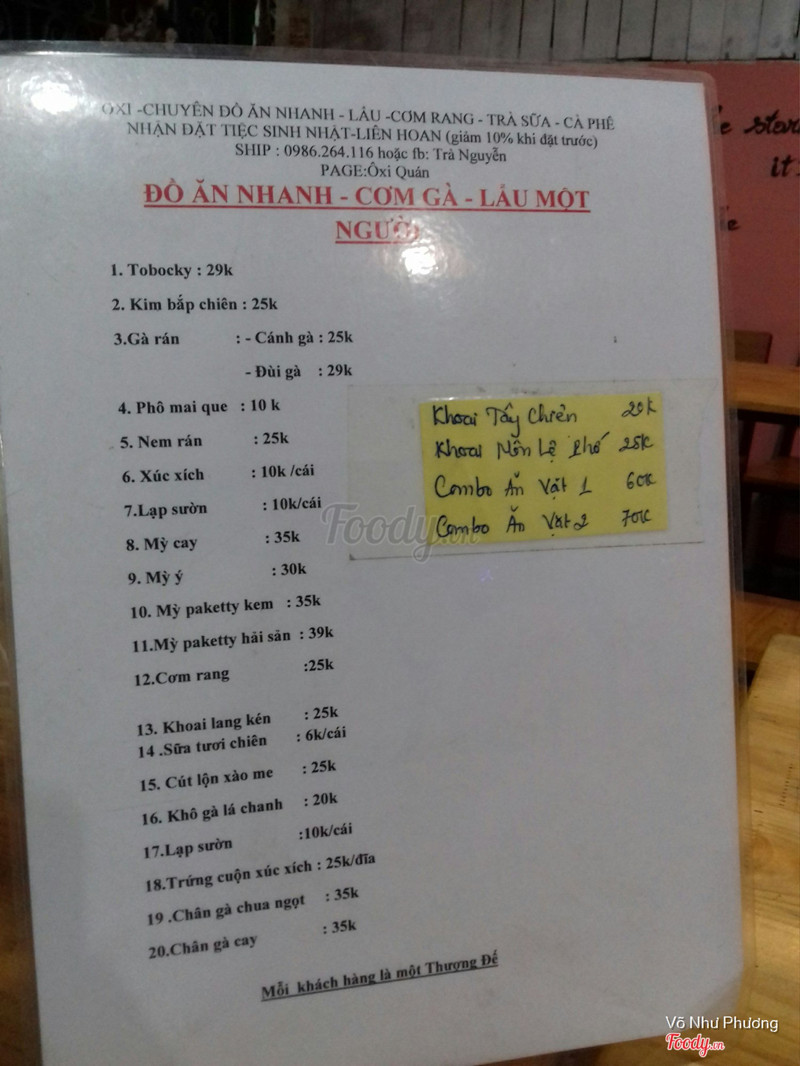 ÔXI -CHUYÊN ĐỒ ĂN NHANH - LẨU -CƠM RANG - TRÀ SỮA - CÀ PHÊ
NHẬN ĐẶT TIỆC SINH NHẬT-LIÊN HOAN (giảm 10% khi đặt trước)
SHIP : 0986.264.116 hoặc fb: Trà Nguyễn
PAGE:Ôxi Quán
ĐỒ ĂN NHANH - CƠM GÀ - LẨU MỘT
NGƯỜI
1. Tobocky : 29k
2. Kim bắp chiên : 25k
3.Gà rán : - Cánh gà : 25k
- Đùi gà : 29k
4. Phô mai que : 10 k
5. Nem rán : 25k
6. Xúc xích : 10k /cái
7.Lạp sườn : 10k/cái
8. Mỳ cay : 35k
9. Mỳ ý : 30k
10. Mỳ paketty kem : 35k
11.Mỳ paketty hải sản : 39k
12.Cơm rang :25k
13. Khoai lang kén : 25k
14 .Sữa tươi chiên : 6k/cái
15. Cút lộn xào me : 25k
16. Khô gà lá chanh : 20k
17.Lạp sườn :10k/cái
18.Trứng cuộn xúc xích : 25k/đĩa
19 .Chân gà chua ngọt : 35k
20.Chân gà cay : 35k
Mỗi khách hàng là một Thượng Đế
Khoai Tây Chiên 20k
Khoai Môn Lệ Phố 25k
Combo Ăn Vặt 1 60k
Combo Ăn Vặt 2 70k
Foody.vn
it
Võ Như Phương
Foody.vn